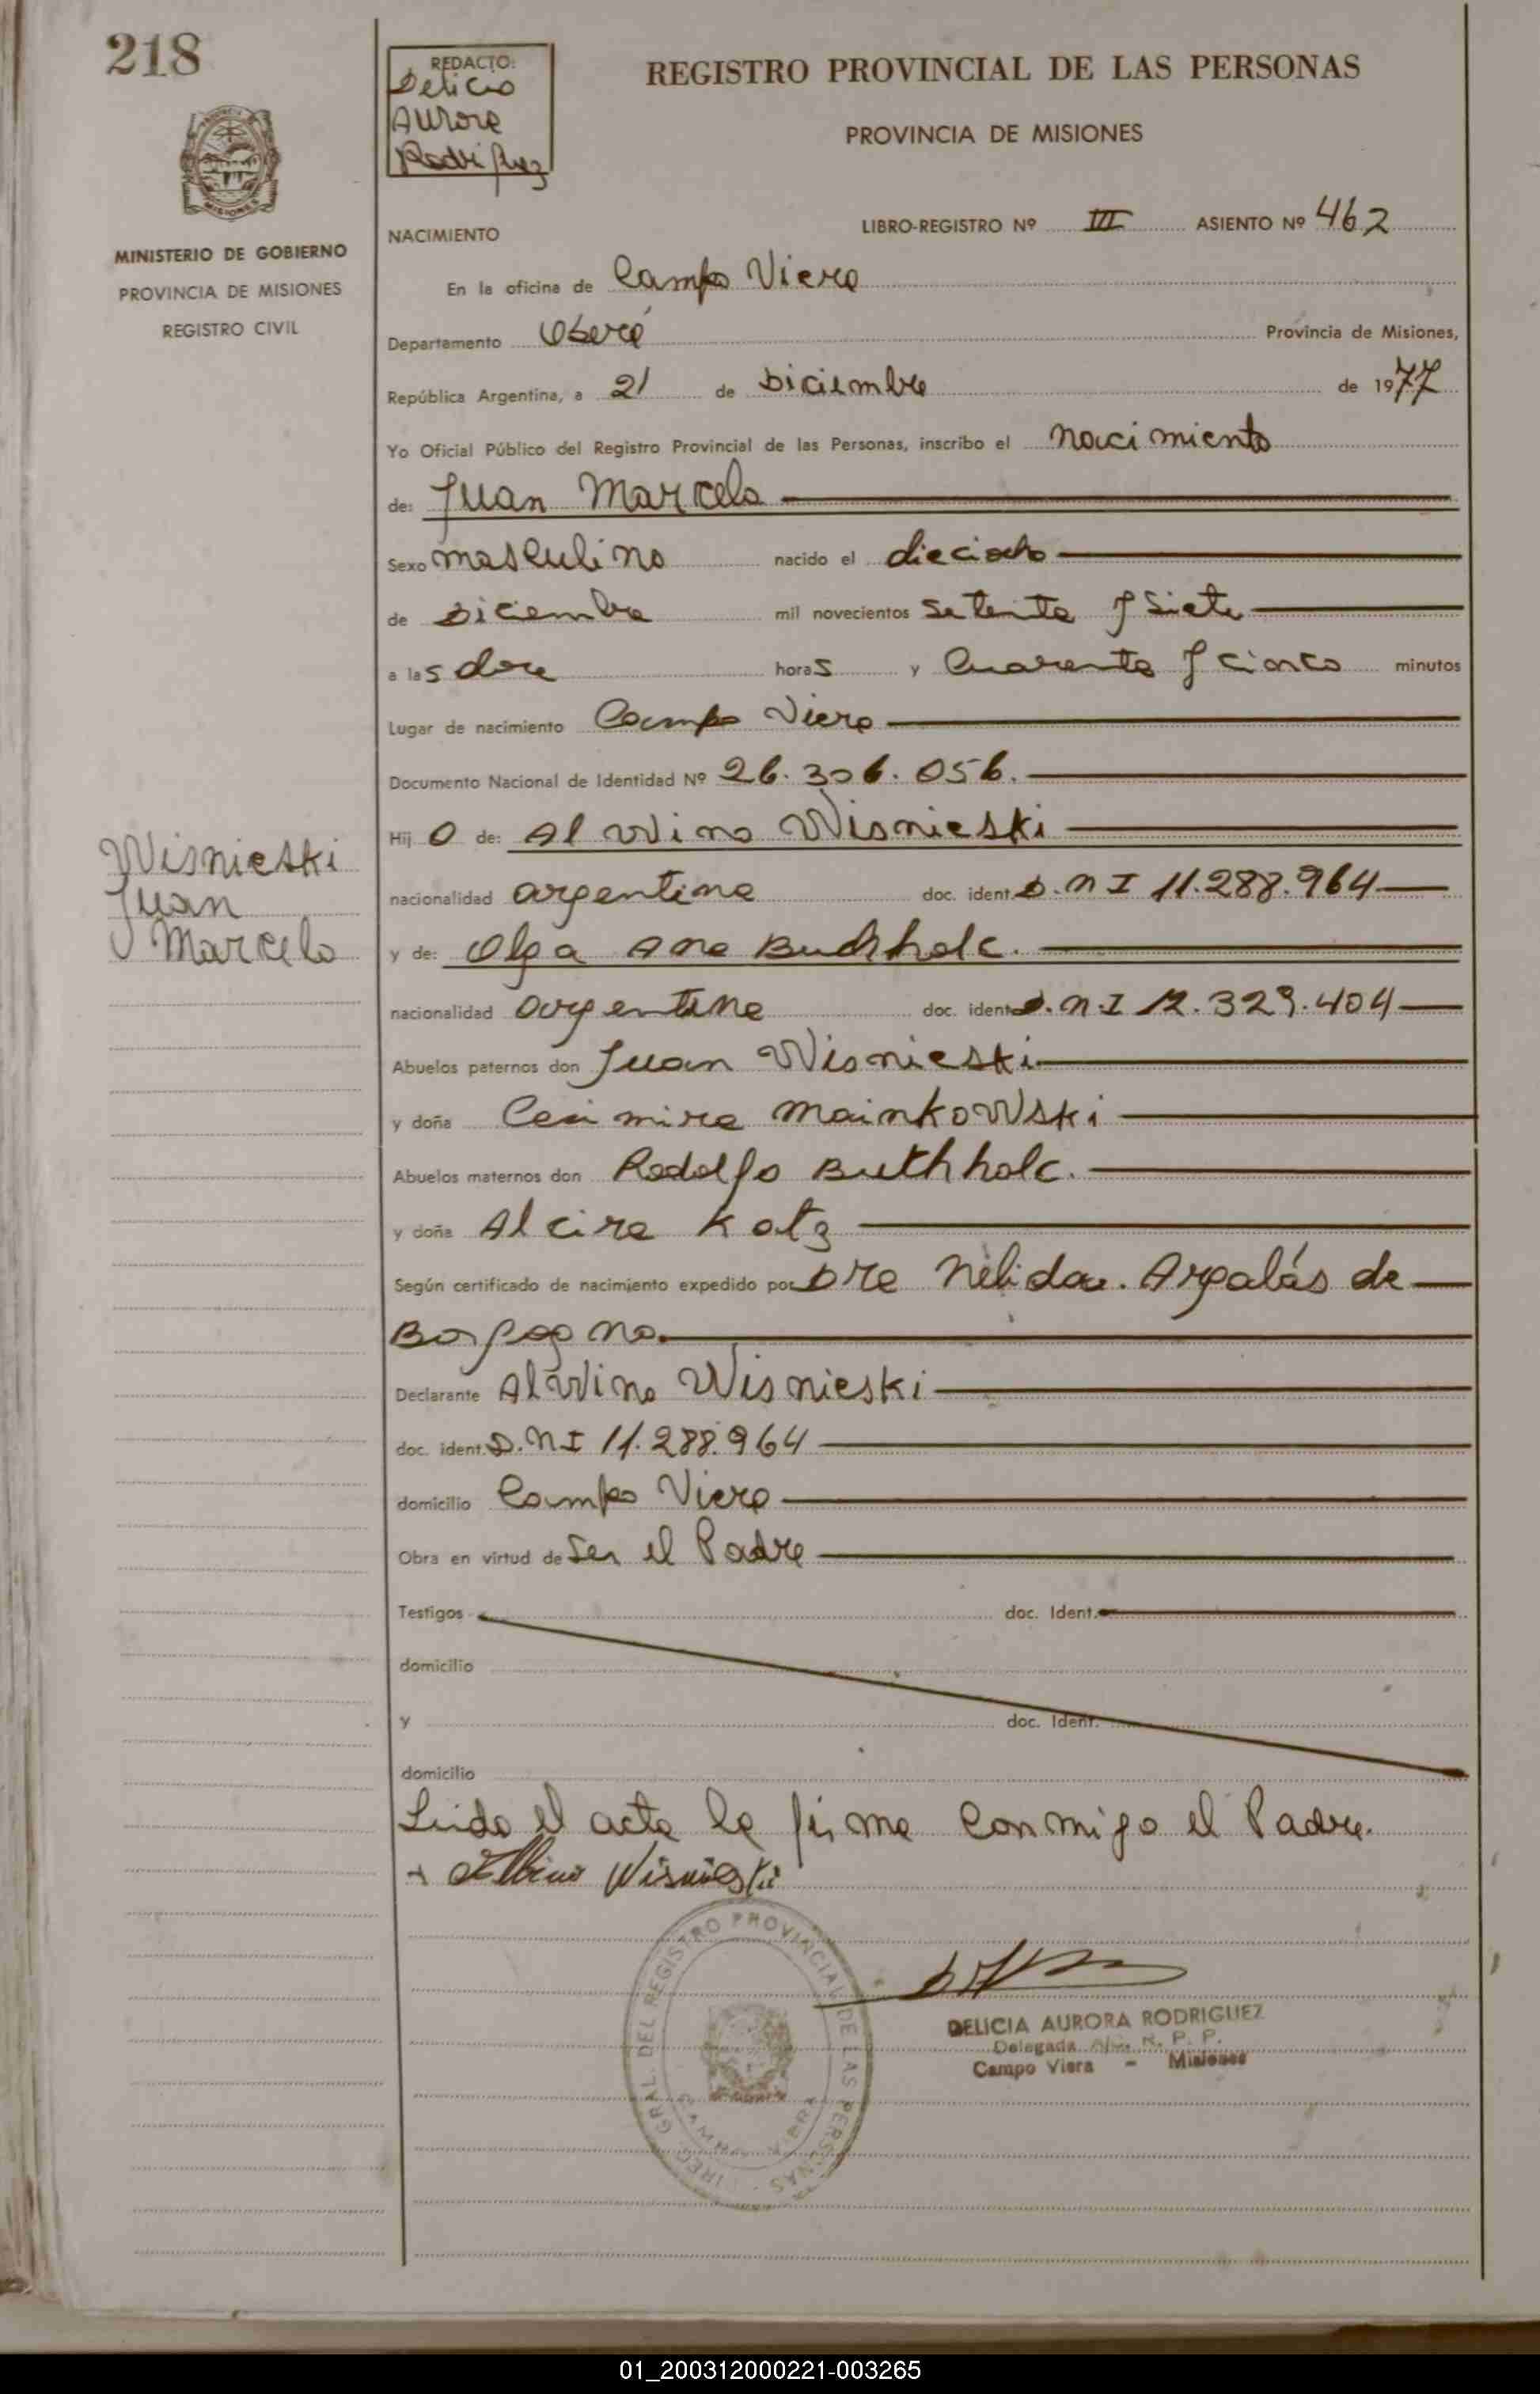 218
REDACTO:
Delicia
Aurora
Rodriguez
REGISTRO PROVINCIAL DE LAS PERSONAS
PROVINCIA DE MISIONES
MISIONES
MINISTERIO DE GOBIERNO
PROVINCIA DE MISIONES
REGISTRO CIVIL
NACIMIENTO
LIBRO-REGISTRO Nº III ASIENTO Nº 462
En la oficina de Campo Viera
Departamento Oberá Provincia de Misiones,
República Argentina, a 21 de Diciembre de 1977
Yo Oficial Público del Registro Provincial de las Personas, inscribo el nacimiento
de: Juan Marcelo
Sexo masculino nacido el dieciocho
de Diciembre mil novecientos setenta y siete
a las doce horas y cuarenta y cinco minutos
Lugar de nacimiento Campo Viera
Documento Nacional de Identidad Nº 26.306.056.
Hijo de: Alwino Wisnieski
Wisnieski
Juan
Marcelo
nacionalidad argentina doc. ident. D.N I 11.288.964
y de: Olga Ana Buchholc.
nacionalidad argentina doc. ident. D.N.I 12.329.404
Abuelos paternos don Juan Wisnieski
y doña Casimira Mainkowski
Abuelos maternos don Rodolfo Buthholc.
y doña Alcira Katz
Según certificado de nacimiento expedido por Dra Nélida. Argalás de
Borgogno.
Declarante Alwino Wisnieski
doc. ident. D.N I 11.288.964
domicilio Campo Viera
Obra en virtud de ser el Padre
Testigos doc. Ident.
domicilio
y doc. Ident.
domicilio
Leida el acta la firma conmigo el Padre.
Albino Wisnieski
GRAL. DEL REGISTRO PROVINCIAL DE LAS PERSONAS
DELICIA AURORA RODRIGUEZ
Delegada R. P. P.
Campo Viera - Misiones
01_200312000221-003265